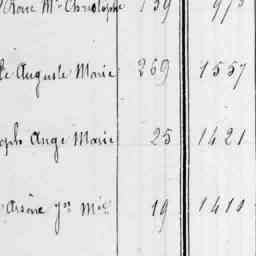 Rose Mie Christophe 159 975
le Auguste Marie 269 1557
oseph Ange Marie 25 1421
Arsène yves Marie 19 1410